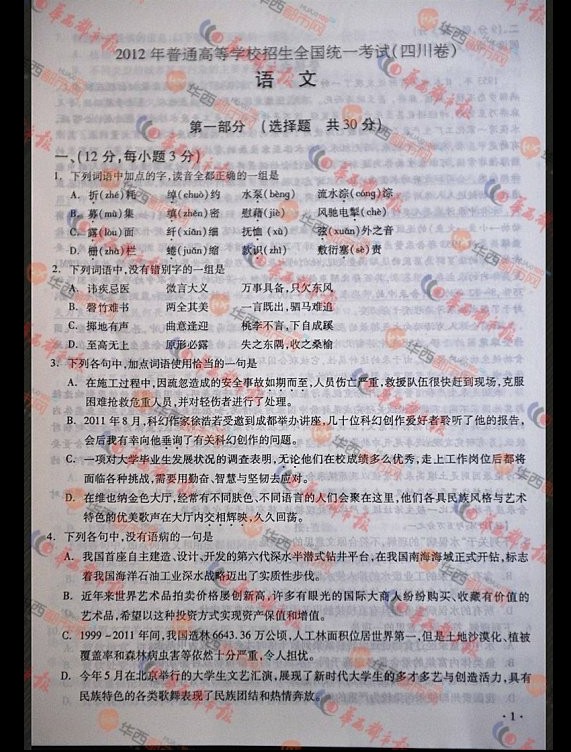 2012年普通高等学校招生全国统一考试(四川卷)
语 文
第一部分 (选择题 共30分)
一、(12分,每小题3分)
1. 下列词语中加点的字,读音全都正确的一组是
A. 折(zhé)耗 绰(chuò)约 水泵(bèng) 流水淙(cóng)淙
B. 募(mù)集 缜(zhěn)密 慰藉(jiè) 风驰电掣(chè)
C. 露(lòu)面 纤(xiān)细 抚恤(xù) 弦(xuán)外之音
D. 栅(zhà)栏 蜷(juǎn)缩 款识(zhì) 敷衍塞(sè)责
2. 下列词语中,没有错别字的一组是
A. 讳疾忌医 微言大义 万事具备,只欠东风
B. 罄竹难书 两全其美 一言既出,驷马难追
C. 掷地有声 曲意逢迎 桃李不言,下自成蹊
D. 至高无上 原形必露 失之东隅,收之桑榆
3. 下列各句中,加点词语使用恰当的一句是
A. 在施工过程中,因疏忽造成的安全事故如期而至,人员伤亡严重,救援队伍很快赶到现场,克服
困难抢救危重人员,并对轻伤者进行了处理。
B. 2011年8月,科幻作家徐浩若受邀到成都举办讲座,几十位科幻创作爱好者聆听了他的报告,
会后我有幸向他垂询了有关科幻创作的问题。
C. 一项对大学毕业生发展状况的调查表明,无论他们在校成绩多么优秀,走上工作岗位后都将
面临各种挑战,需要用勤奋、智慧与坚韧去应对。
D. 在维也纳金色大厅,经常有不同肤色、不同语言的人们会聚在这里,他们各具民族风格与艺术
特色的优美歌声在大厅内交相辉映,久久回荡。
4. 下列各句中,没有语病的一句是
A. 我国首座自主建造、设计、开发的第六代深水半潜式钻井平台,在我国南海海域正式开钻,标志
着我国海洋石油工业深水战略迈出了实质性步伐。
B. 近年来世界艺术品拍卖价格屡创新高,许多有眼光的国际大商人纷纷购买、收藏有价值的
艺术品,希望以这种投资方式实现资产保值和增值。
C. 1999~2011年间,我国造林6643.36万公顷,人工林面积位居世界第一,但是土地沙漠化、植被
覆盖率和森林病虫害等依然十分严重,令人担忧。
D. 今年5月在北京举行的大学生文艺汇演,展现了新时代大学生的多才多艺与创造活力,具有
民族特色的各类歌舞表现了民族团结和热情奔放。
·1·
华西都市报
华西都市网